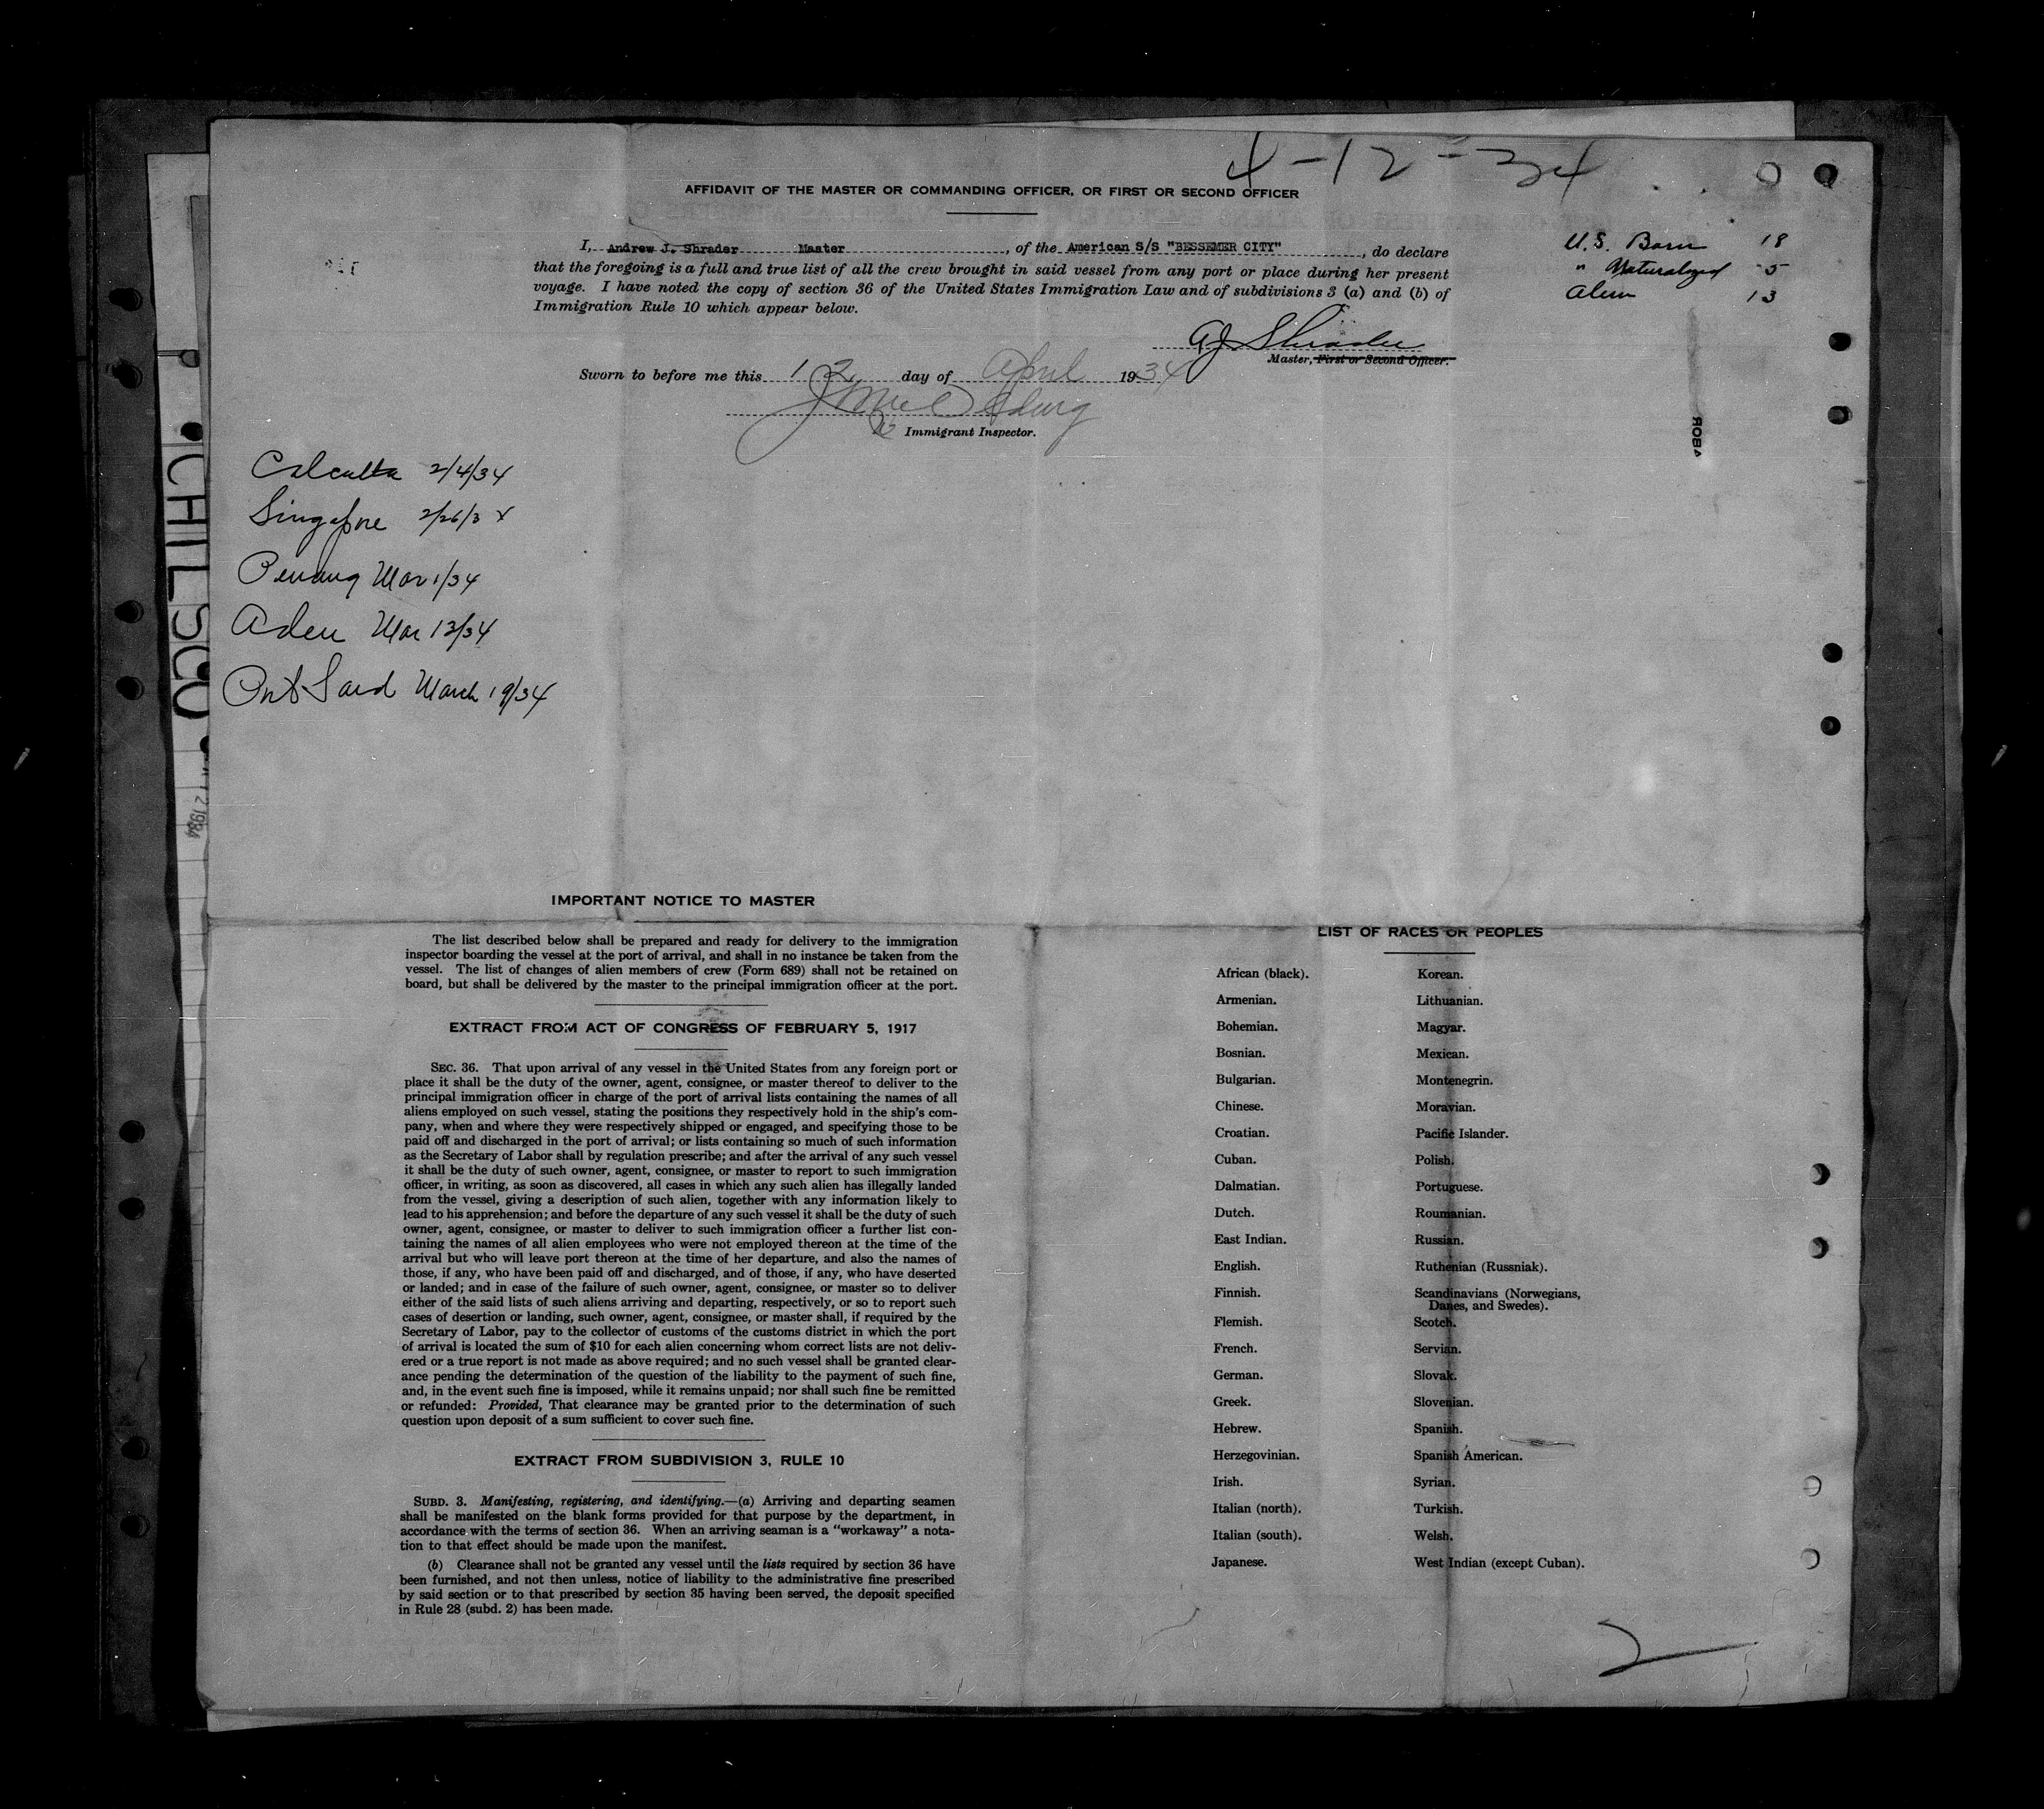 4-12-34
AFFIDAVIT OF THE MASTER OR COMMANDING OFFICER, OR FIRST OR SECOND OFFICER
I, Andrew J. Shrader Master, of the American S/S "BESSEMER CITY", do declare
that the foregoing is a full and true list of all the crew brought in said vessel from any port or place during her present
voyage. I have noted the copy of section 36 of the United States Immigration Law and of subdivisions 3 (a) and (b) of
Immigration Rule 10 which appear below.
U.S. Born 18
" Naturalized 5
Alien 13
AJ Shrader
Master, First or Second Officer.
Sworn to before me this 12 day of April 1934
Immigrant Inspector.
Calcutta 2/4/34
Singapore 2/26/34
Penang Mar 1/34
Aden Mar 13/34
Port Said March 19/34
CHILSCO
IMPORTANT NOTICE TO MASTER
The list described below shall be prepared and ready for delivery to the immigration
inspector boarding the vessel at the port of arrival, and shall in no instance be taken from the
vessel. The list of changes of alien members of crew (Form 689) shall not be retained on
board, but shall be delivered by the master to the principal immigration officer at the port.
EXTRACT FROM ACT OF CONGRESS OF FEBRUARY 5, 1917
SEC. 36. That upon arrival of any vessel in the United States from any foreign port or
place it shall be the duty of the owner, agent, consignee, or master thereof to deliver to the
principal immigration officer in charge of the port of arrival lists containing the names of all
aliens employed on such vessel, stating the positions they respectively hold in the ship's com-
pany, when and where they were respectively shipped or engaged, and specifying those to be
paid off and discharged in the port of arrival; or lists containing so much of such information
as the Secretary of Labor shall by regulation prescribe; and after the arrival of any such vessel
it shall be the duty of such owner, agent, consignee, or master to report to such immigration
officer, in writing, as soon as discovered, all cases in which any such alien has illegally landed
from the vessel, giving a description of such alien, together with any information likely to
lead to his apprehension; and before the departure of any such vessel it shall be the duty of such
owner, agent, consignee, or master to deliver to such immigration officer a further list con-
taining the names of all alien employees who were not employed thereon at the time of the
arrival but who will leave port thereon at the time of her departure, and also the names of
those, if any, who have been paid off and discharged, and of those, if any, who have deserted
or landed; and in case of the failure of such owner, agent, consignee, or master so to deliver
either of the said lists of such aliens arriving and departing, respectively, or so to report such
cases of desertion or landing, such owner, agent, consignee, or master shall, if required by the
Secretary of Labor, pay to the collector of customs of the customs district in which the port
of arrival is located the sum of $10 for each alien concerning whom correct lists are not deliv-
ered or a true report is not made as above required; and no such vessel shall be granted clear-
ance pending the determination of the question of the liability to the payment of such fine,
and, in the event such fine is imposed, while it remains unpaid; nor shall such fine be remitted
or refunded: Provided, That clearance may be granted prior to the determination of such
question upon deposit of a sum sufficient to cover such fine.
EXTRACT FROM SUBDIVISION 3, RULE 10
SUBD. 3. Manifesting, registering, and identifying.—(a) Arriving and departing seamen
shall be manifested on the blank forms provided for that purpose by the department, in
accordance with the terms of section 36. When an arriving seaman is a "workaway" a nota-
tion to that effect should be made upon the manifest.
(b) Clearance shall not be granted any vessel until the lists required by section 36 have
been furnished, and not then unless, notice of liability to the administrative fine prescribed
by said section or to that prescribed by section 35 having been served, the deposit specified
in Rule 28 (subd. 2) has been made.
LIST OF RACES OR PEOPLES
African (black).
Armenian.
Bohemian.
Bosnian.
Bulgarian.
Chinese.
Croatian.
Cuban.
Dalmatian.
Dutch.
East Indian.
English.
Finnish.
Flemish.
French.
German.
Greek.
Hebrew.
Herzegovinian.
Irish.
Italian (north).
Italian (south).
Japanese.
Korean.
Lithuanian.
Magyar.
Mexican.
Montenegrin.
Moravian.
Pacific Islander.
Polish.
Portuguese.
Roumanian.
Russian.
Ruthenian (Russniak).
Scandinavians (Norwegians,
Danes, and Swedes).
Scotch.
Servian.
Slovak.
Slovenian.
Spanish.
Spanish American.
Syrian.
Turkish.
Welsh.
West Indian (except Cuban).
2